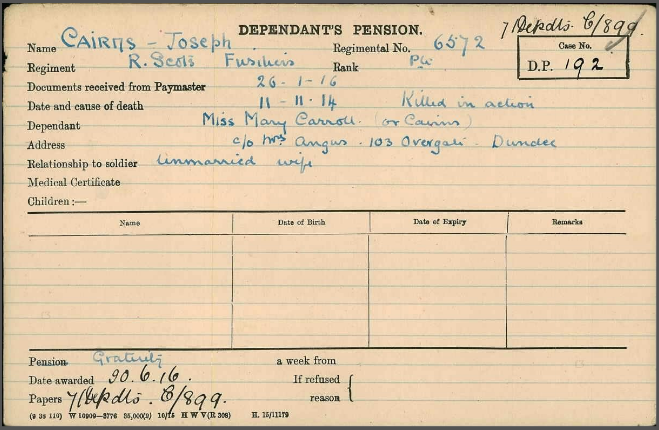 DEPENDANT'S PENSION.
7/Depdts. C/899.
Name CAIRNS - Joseph Regimental No. 6572
Case No.
D.P. 192
Regiment R. Scots Fusiliers Rank Pte
Documents received from Paymaster 26-1-16
Date and cause of death 11-11-14 Killed in action
Dependant Miss Mary Carroll (or Cairns)
Address c/o Mrs Angus. 103 Overgate. Dundee
Relationship to soldier Unmarried wife
Medical Certificate
Children :—
Name Date of Birth Date of Expiry Remarks
Pension Gratuity a week from
Date awarded 30.6.16. If refused
Papers 7/Depdts. C/899. reason
(9 38 110) W 10909—3776 35,000(2) 10/15 H W V(R 308) H. 15/11179